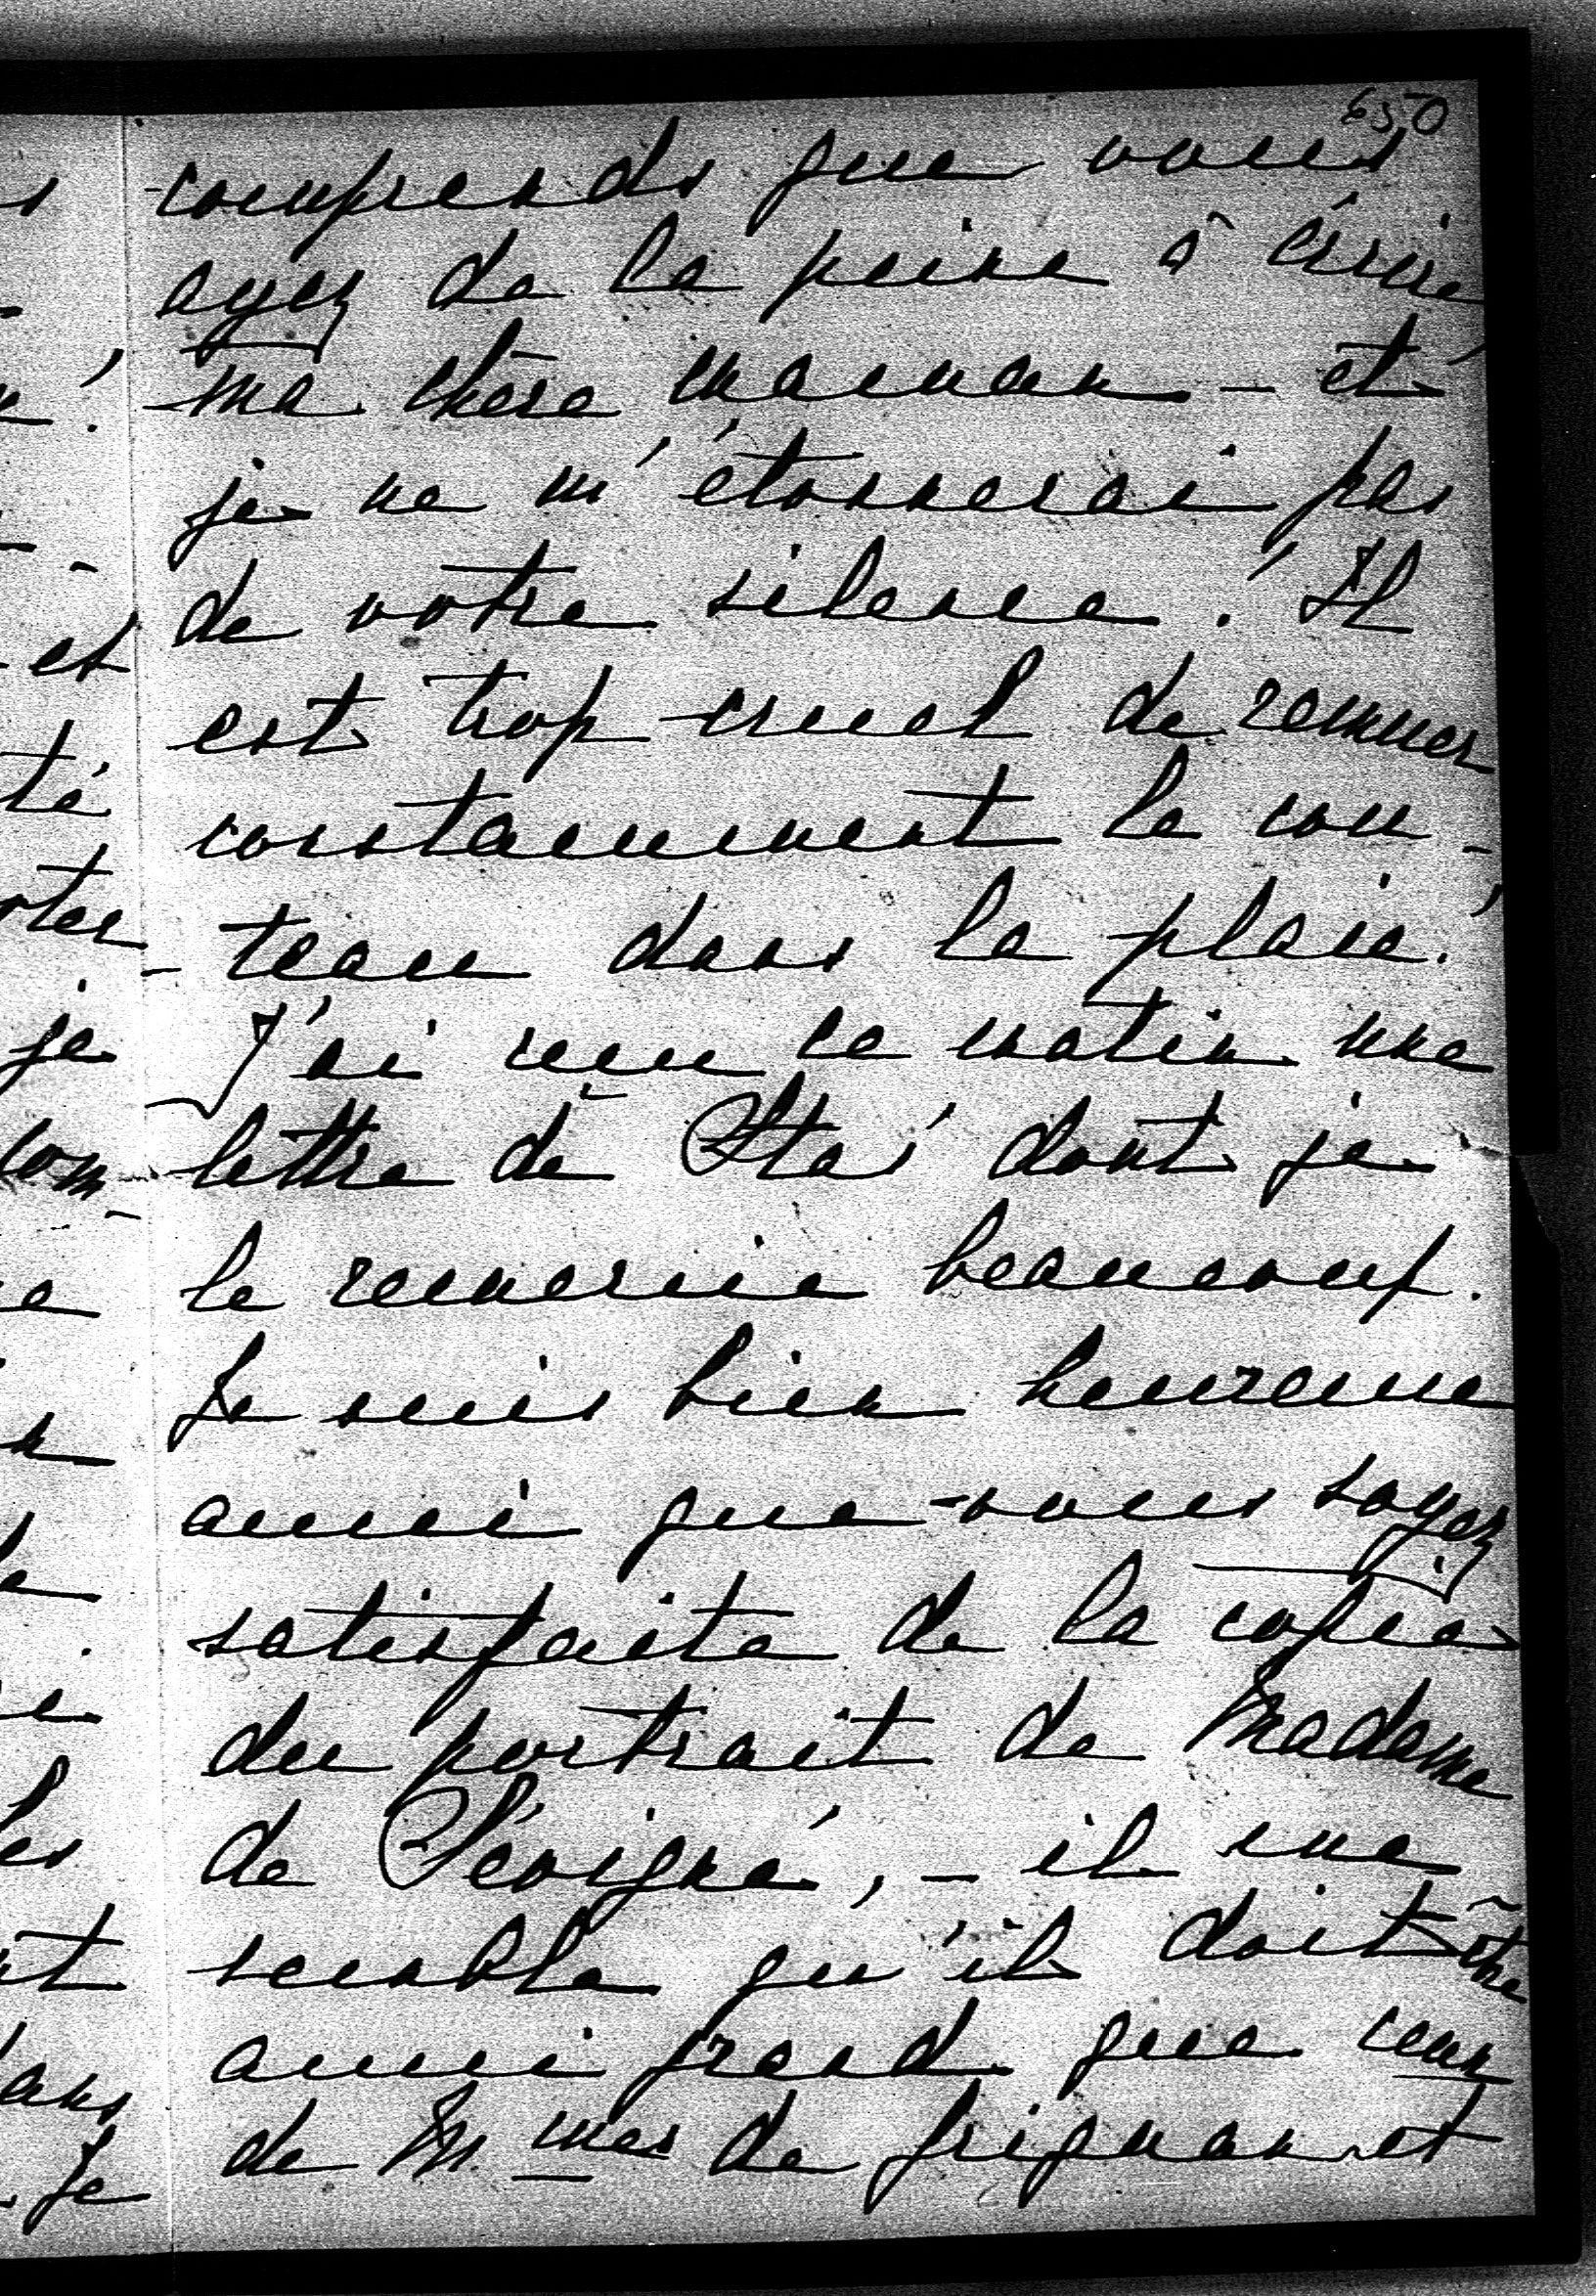 650
comprends que vous
ayez de la peine à écrire
ma chère maman – et
je ne m'étonnerai pas
de votre silence ! Il
est trop cruel de remuer
constamment le cou-
-teau dans la plaie !
J'ai reçu ce matin une
lettre de dont je
le remercie beaucoup.
Je suis bien heureuse
aussi que vous soyez
satisfaite de la copie
du portrait de Madame
de Sévigné, – il me
semble qu'il doit être
aussi grand que ceux
de Mmes de Grignan et